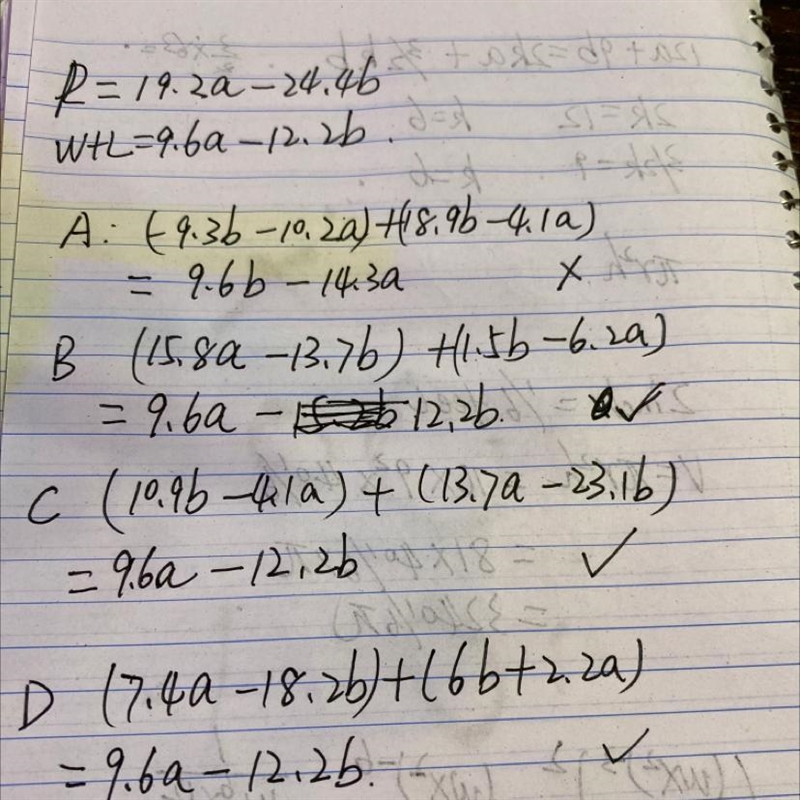 P=19.2a-24.4b
W+L=9.6a-12.2b.
A: (-9.3b-10.2a)+(18.9b-4.1a)
= 9.6b-14.3a ×
B (15.8a-13.7b) +(1.5b-6.2a)
= 9.6a- 12.2b. ✓
C (10.9b-4.1a) + (13.7a-23.1b)
= 9.6a-12.2b ✓
D (7.4a-18.2b)+(6b+2.2a)
= 9.6a-12.2b. ✓